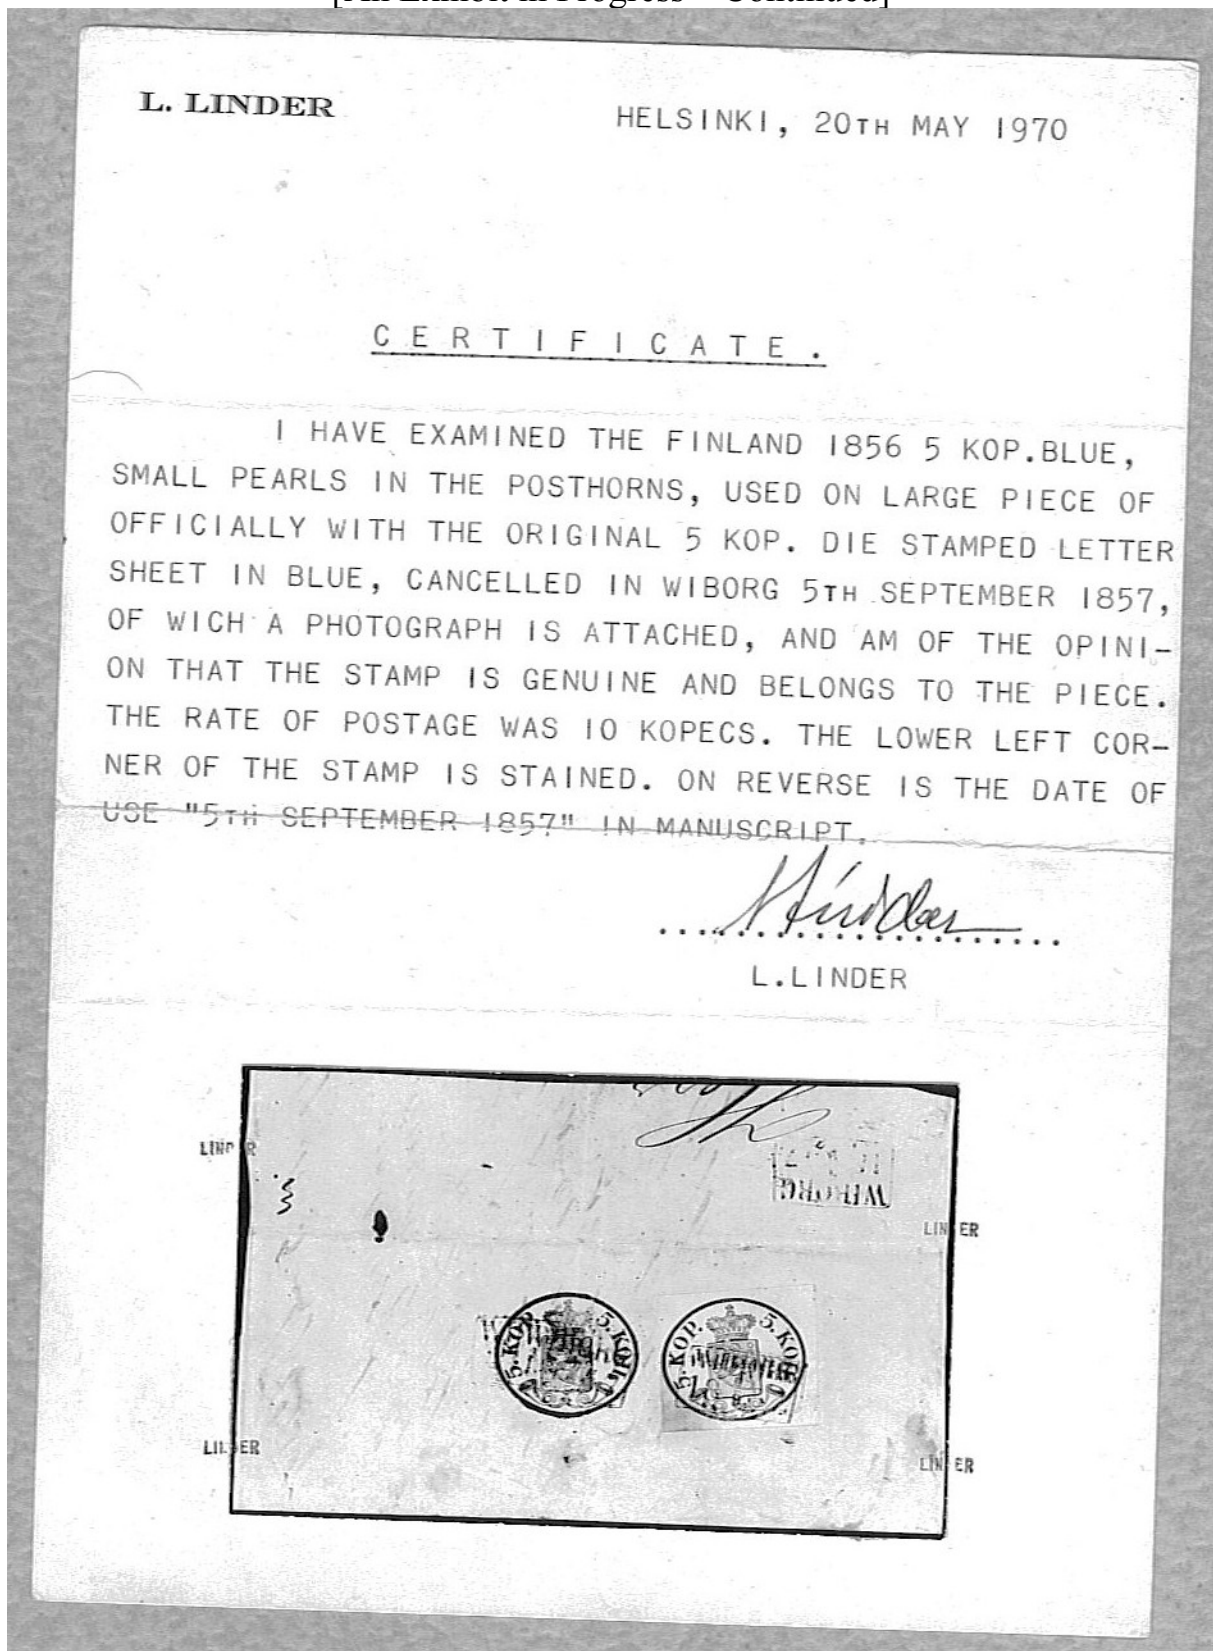 [An Exhibit in Progress – Continued]
L. LINDER
HELSINKI, 20TH MAY 1970
CERTIFICATE.
I HAVE EXAMINED THE FINLAND 1856 5 KOP.BLUE,
SMALL PEARLS IN THE POSTHORNS, USED ON LARGE PIECE OF
OFFICIALLY WITH THE ORIGINAL 5 KOP. DIE STAMPED LETTER
SHEET IN BLUE, CANCELLED IN WIBORG 5TH SEPTEMBER 1857,
OF WICH A PHOTOGRAPH IS ATTACHED, AND AM OF THE OPINI-
ON THAT THE STAMP IS GENUINE AND BELONGS TO THE PIECE.
THE RATE OF POSTAGE WAS 10 KOPECS. THE LOWER LEFT COR-
NER OF THE STAMP IS STAINED. ON REVERSE IS THE DATE OF
USE "5TH SEPTEMBER 1857" IN MANUSCRIPT.
L.LINDER
LINDER
WIBORG
LINDER
5.KOP. 5.KOP.
5.KOP. 5.KOP.
WIBORG
LINDER
LINDER